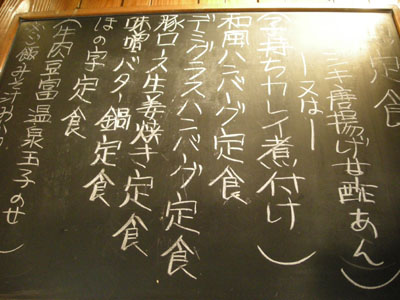 定食
キ唐揚げ甘酢あん)
ー又はー
(子持ちカレイ煮付け)
和風ハンバーグ定食
デミグラスハンバーグ定食
豚ロース生姜焼き定食
味噌バター鍋定食
ほの字定食
(牛肉豆富温泉玉子のせ)
ご飯みそ汁おか